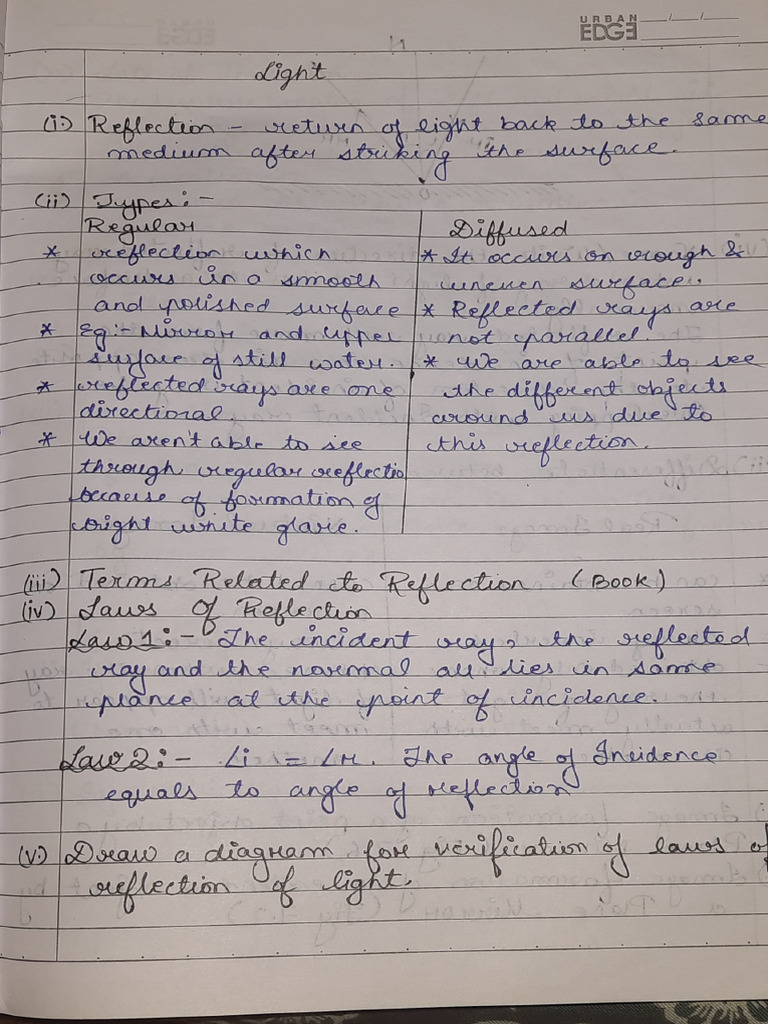 URBAN
EDGE
Light
(i) Reflection - return of light back to the same
medium after striking the surface.
(ii) Types:-
Regular
* reflection which
occurs in a smooth
and polished surface
* Eg:- Mirror and upper
surface of still water.
* reflected rays are one
directional.
* We aren't able to see
through regular reflectio
because of formation of
bright white glare.
Diffused
* It occurs on rough &
uneven surface.
* Reflected rays are
not parallel.
* We are able to see
the different objects
around us due to
this reflection.
(iii) Terms Related to Reflection (Book)
(iv) Laws of Reflection
Law 1:- The incident ray, the reflected
ray and the normal all lies in same
plance at the point of incidence.
Law 2:- ∠i = ∠r. The angle of Incidence
equals to angle of reflection
(v) Draw a diagram for verification of laws of
reflection of light.